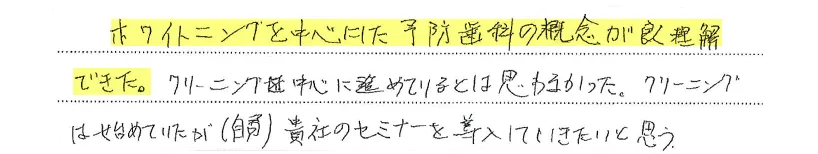 ホワイトニングを中心にした予防歯科の概念が良く理解
できた。クリーニングを中心に進めているとは思わなかった。クリーニング
は始めていたが(自費)貴社のセミナーを導入していきたいと思う